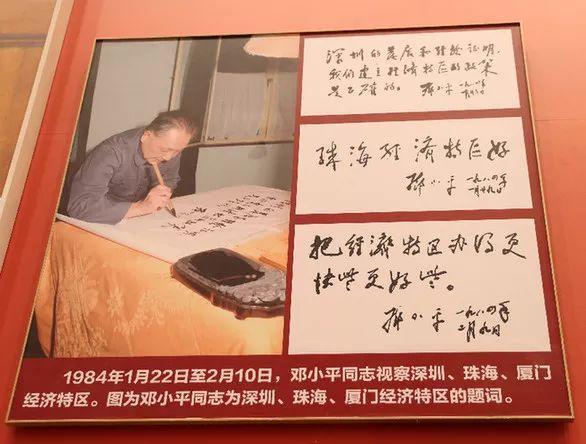 深圳的发展和经验证明，
我们建立经济特区的政策
是正确的。
邓小平 一九八四年
一月廿六日
珠海经济特区好
邓小平 一九八四年
一月廿九日
把经济特区办得更
快些更好些。
邓小平 一九八四年
二月九日
1984年1月22日至2月10日，邓小平同志视察深圳、珠海、厦门
经济特区。图为邓小平同志为深圳、珠海、厦门经济特区的题词。